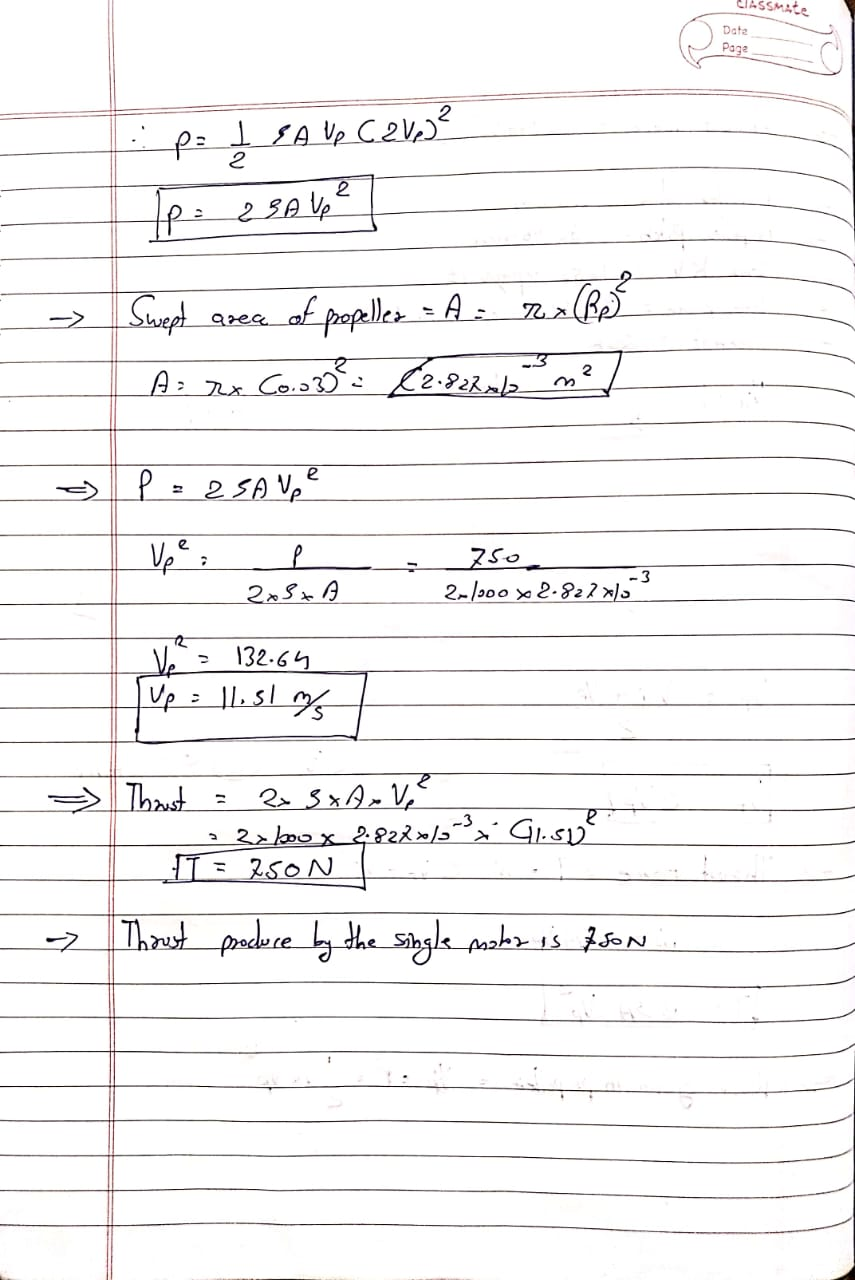 classmate
Date
Page
∴ P = 1/2 ρ A Vp (2Vp)²
P = 2 ρ A Vp²
→ Swept area of propeller = A = π × (Rp)²
A = π × (0.03)² = 2.827 × 10⁻³ m²
⇒ P = 2 ρ A Vp²
Vp² = P / (2 × ρ × A) = 750 / (2 × 1000 × 2.827 × 10⁻³)
Vp² = 132.64
Vp = 11.51 m/s
⇒ Thrust = 2 × ρ × A × Vp²
= 2 × 1000 × 2.827 × 10⁻³ × (11.51)²
T = 750 N
→ Thrust produce by the single motor is 750N